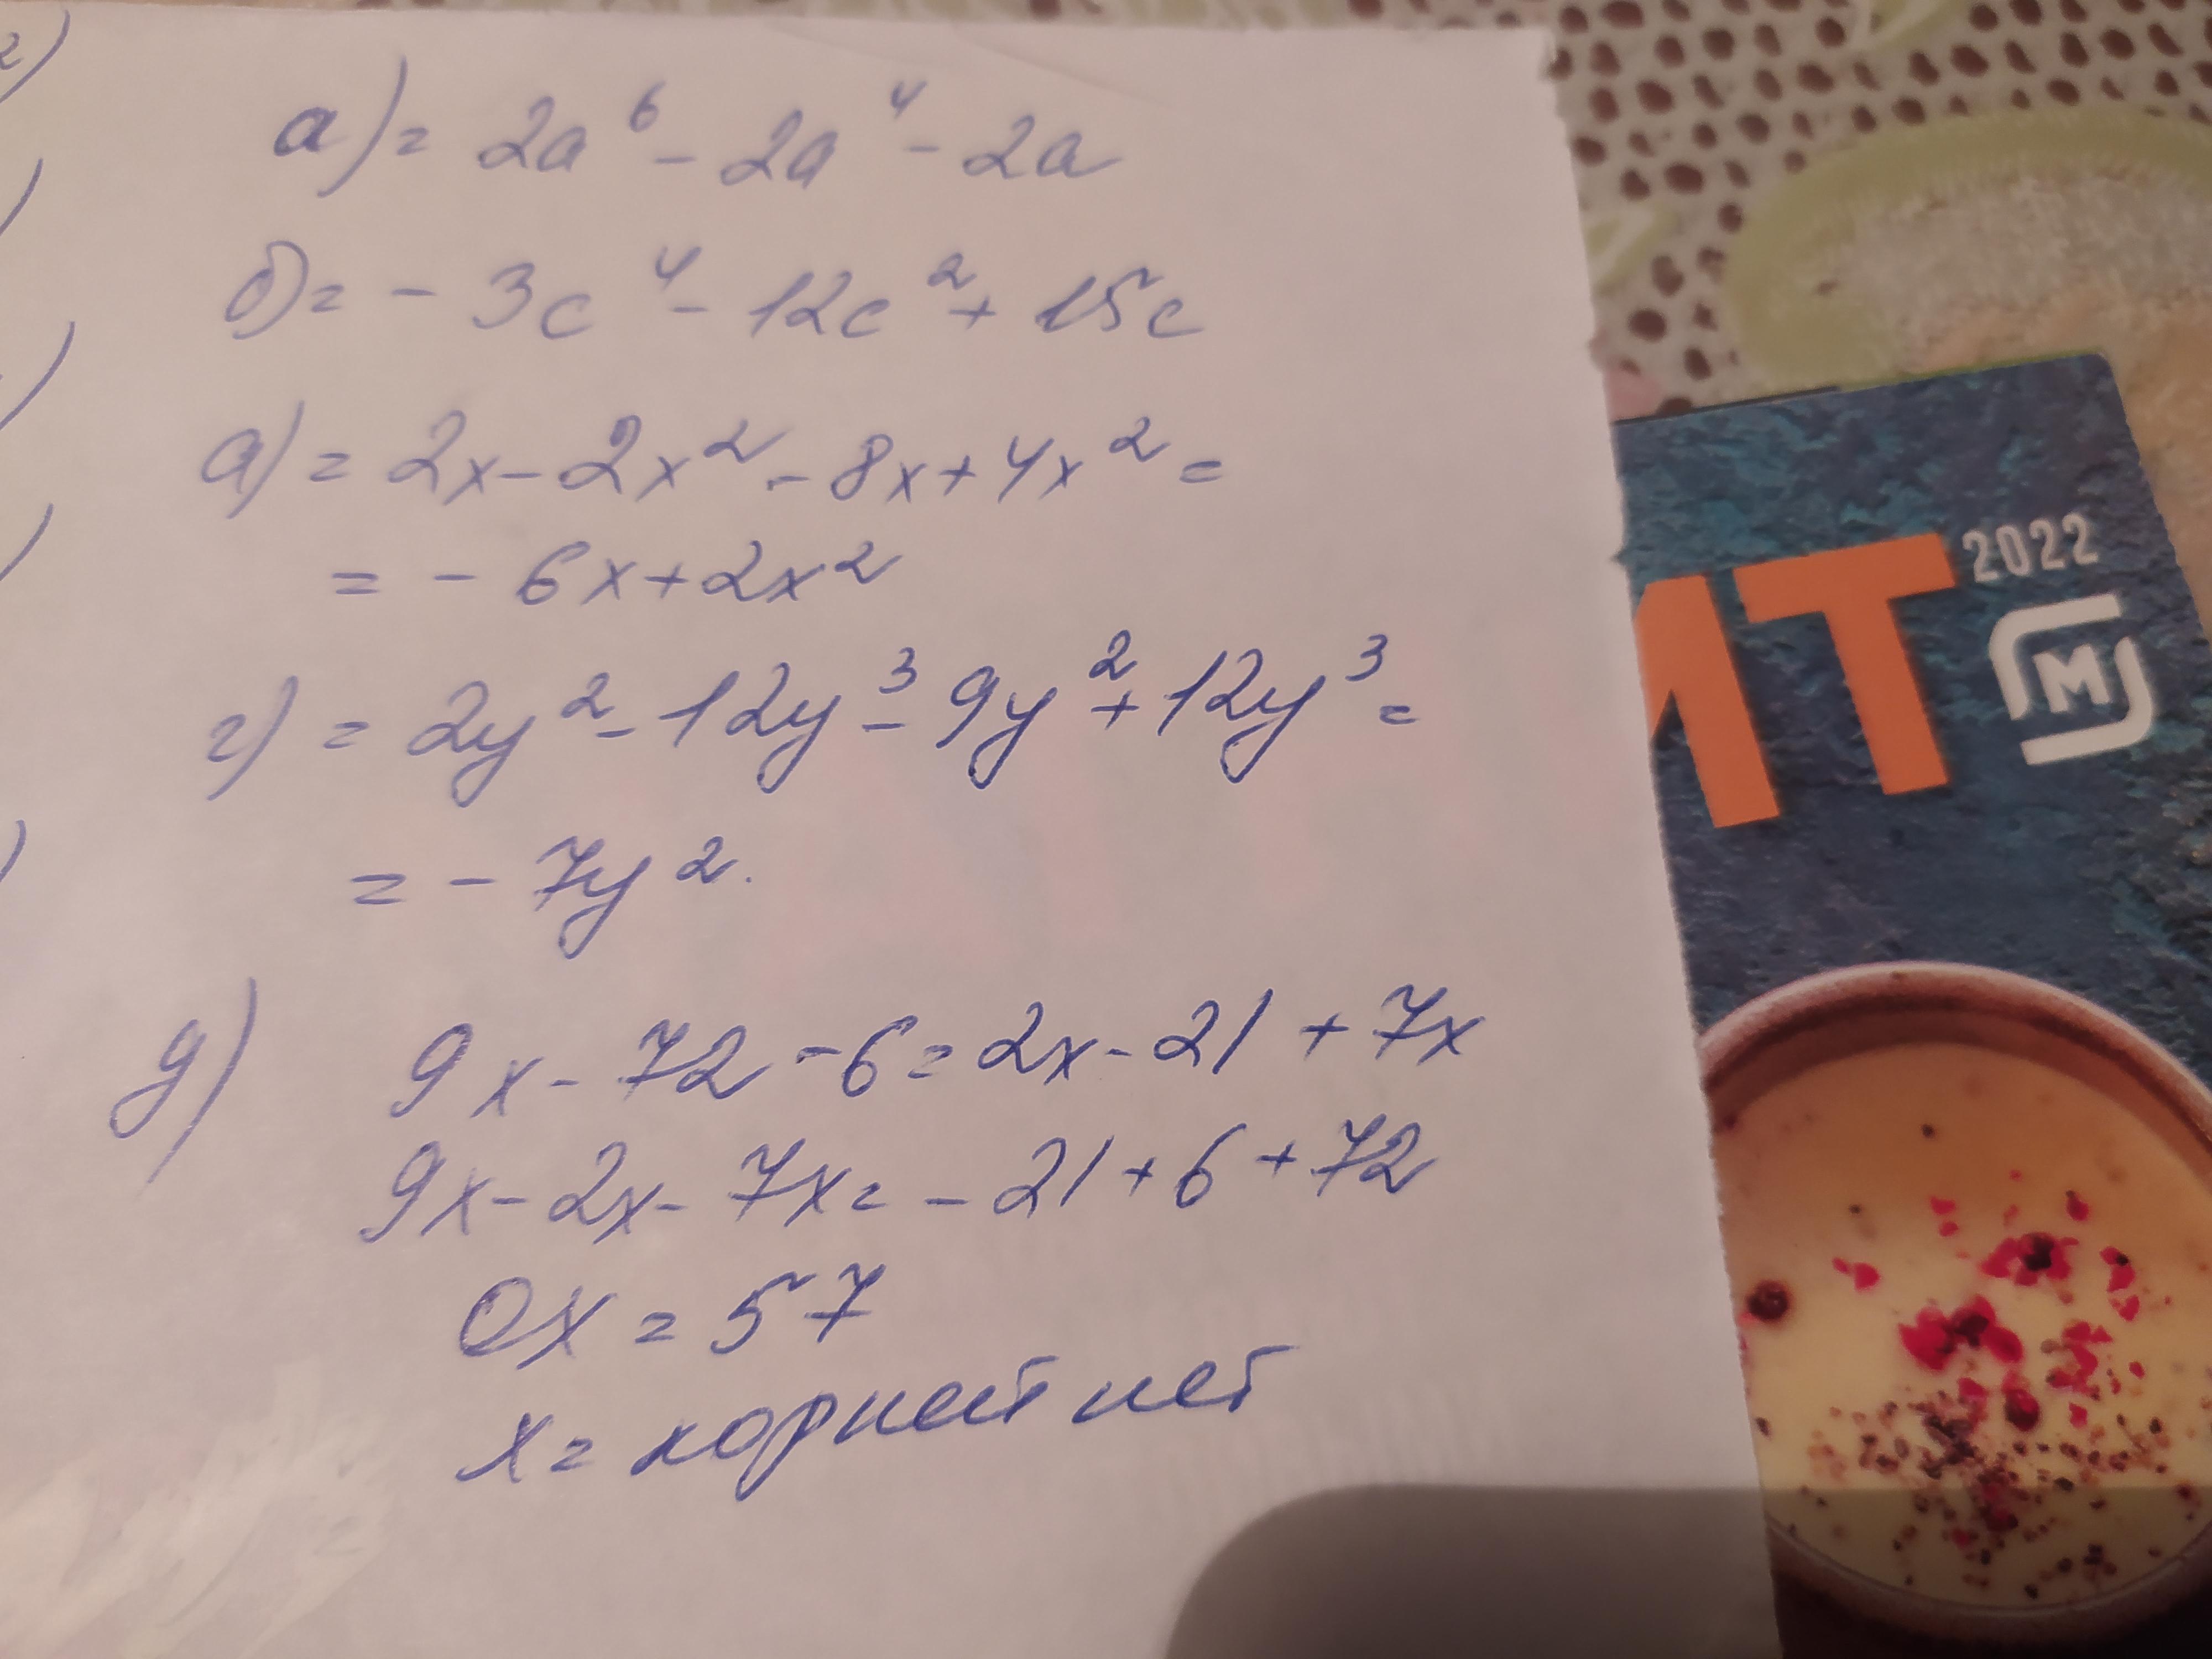 а) = 2a⁶ - 2a⁴ - 2a
б) = - 3c⁴ - 12c² + 15c
а) = 2x - 2x² - 8x + 4x² =
= - 6x + 2x²
г) = 2y² - 12y³ - 9y² + 12y³ =
= - 7y².
д) 9x - 72 - 6 = 2x - 21 + 7x
9x - 2x - 7x = - 21 + 6 + 72
0x = 57
x = корней нет
2022
М